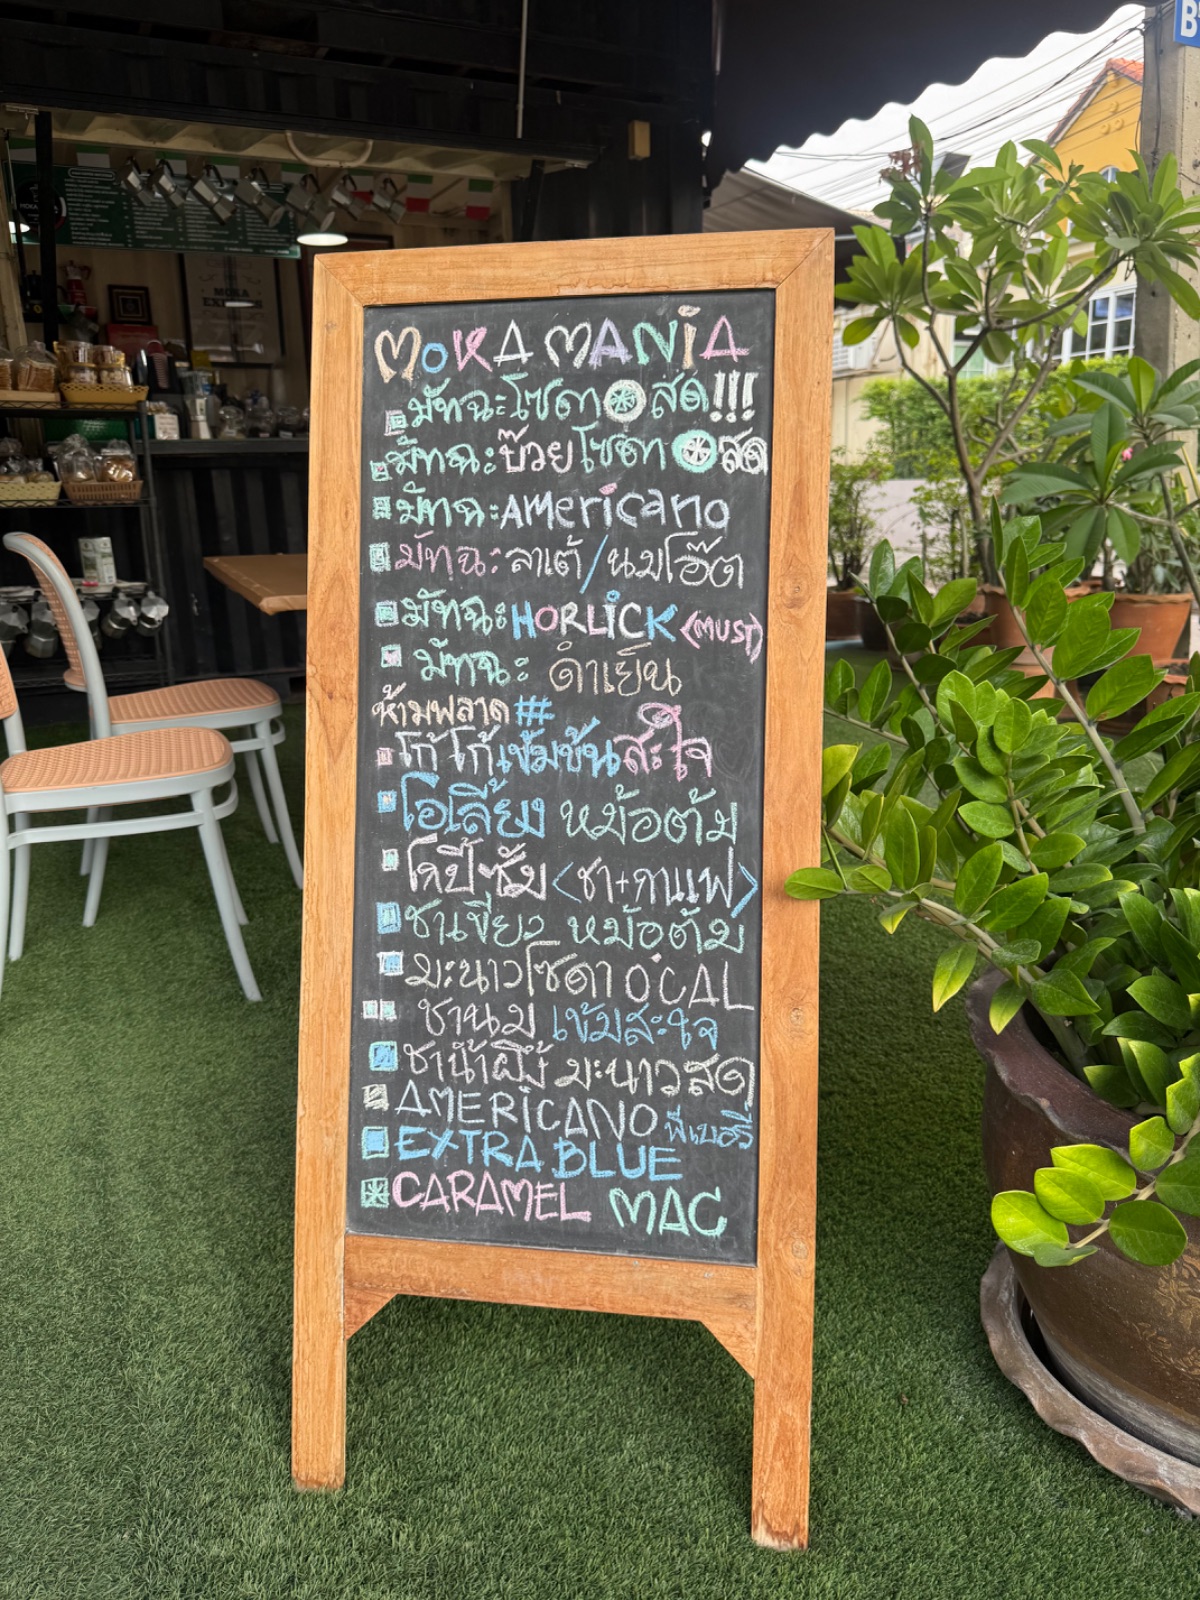 MOKA MANIA
มัทฉะโซดา สด!!!
มัทฉะบ๊วยโซดา สด
มัทฉะAmericano
มัทฉะลาเต้/นมโอ๊ต
มัทฉะHORLICK (MUST)
มัทฉะ ดำเย็น
ห้ามพลาด#
โก้โก้เข้มข้นสะใจ
โอเลี้ยง หม้อต้ม
โกปี้ซัม <ชา+กาแฟ>
ชาเขียว หม้อต้ม
มะนาวโซดา 0'CAL
ชานม เข้มสะใจ
ชาน้ำผึ้ง มะนาวสด
AMERICANO พีเบอรี่
EXTRA BLUE
CARAMEL MAC
MOKA